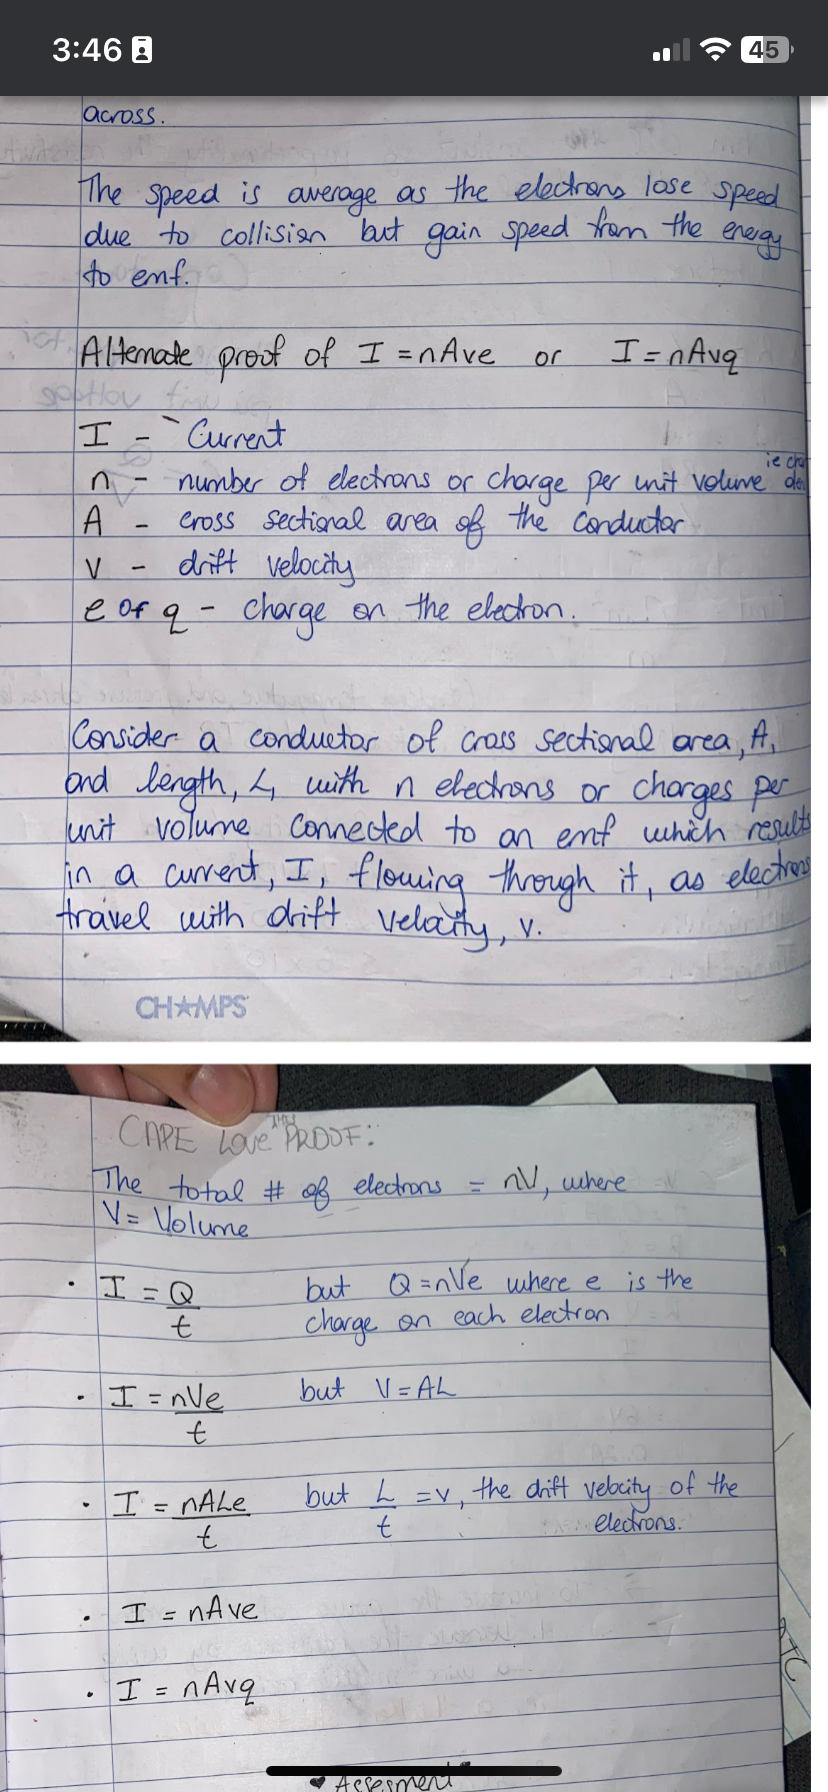 3:46
45
across.
The speed is average as the electrons lose speed
due to collision but gain speed from the energy
to emf.
Alternate proof of I = nAve or I = nAvq
I - Current
ie
n - number of electrons or charge per unit volume
A - cross sectional area of the conductor
v - drift velocity
e or q - charge on the electron.
Consider a conductor of cross sectional area, A,
and length, L, with n electrons or charges per
unit volume connected to an emf which results
in a current, I, flowing through it, as electrons
travel with drift velocity, v.
CH★MPS
CAPE Love PROOF:
The total # of electrons = nV, where
V = Volume
• I = Q/t but Q = nVe where e is the
charge on each electron
• I = nVe/t but V = AL
• I = nALe/t but L/t = v, the drift velocity of the
electrons.
• I = nAve
• I = nAvq
♥ Assesment